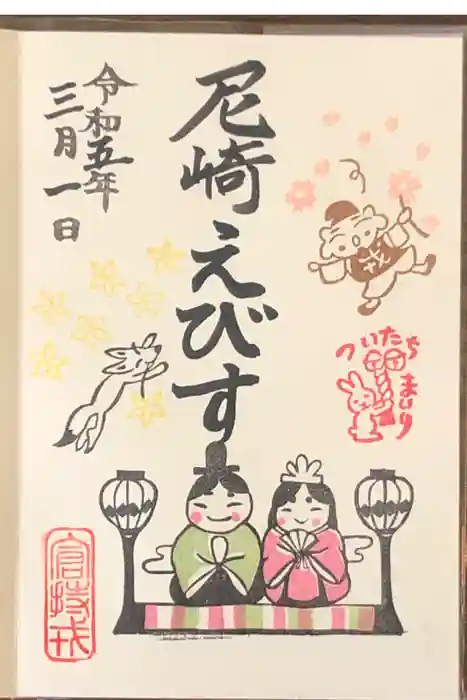 令和五年
三月一日
尼崎えびす
戎
ついたち
まいり